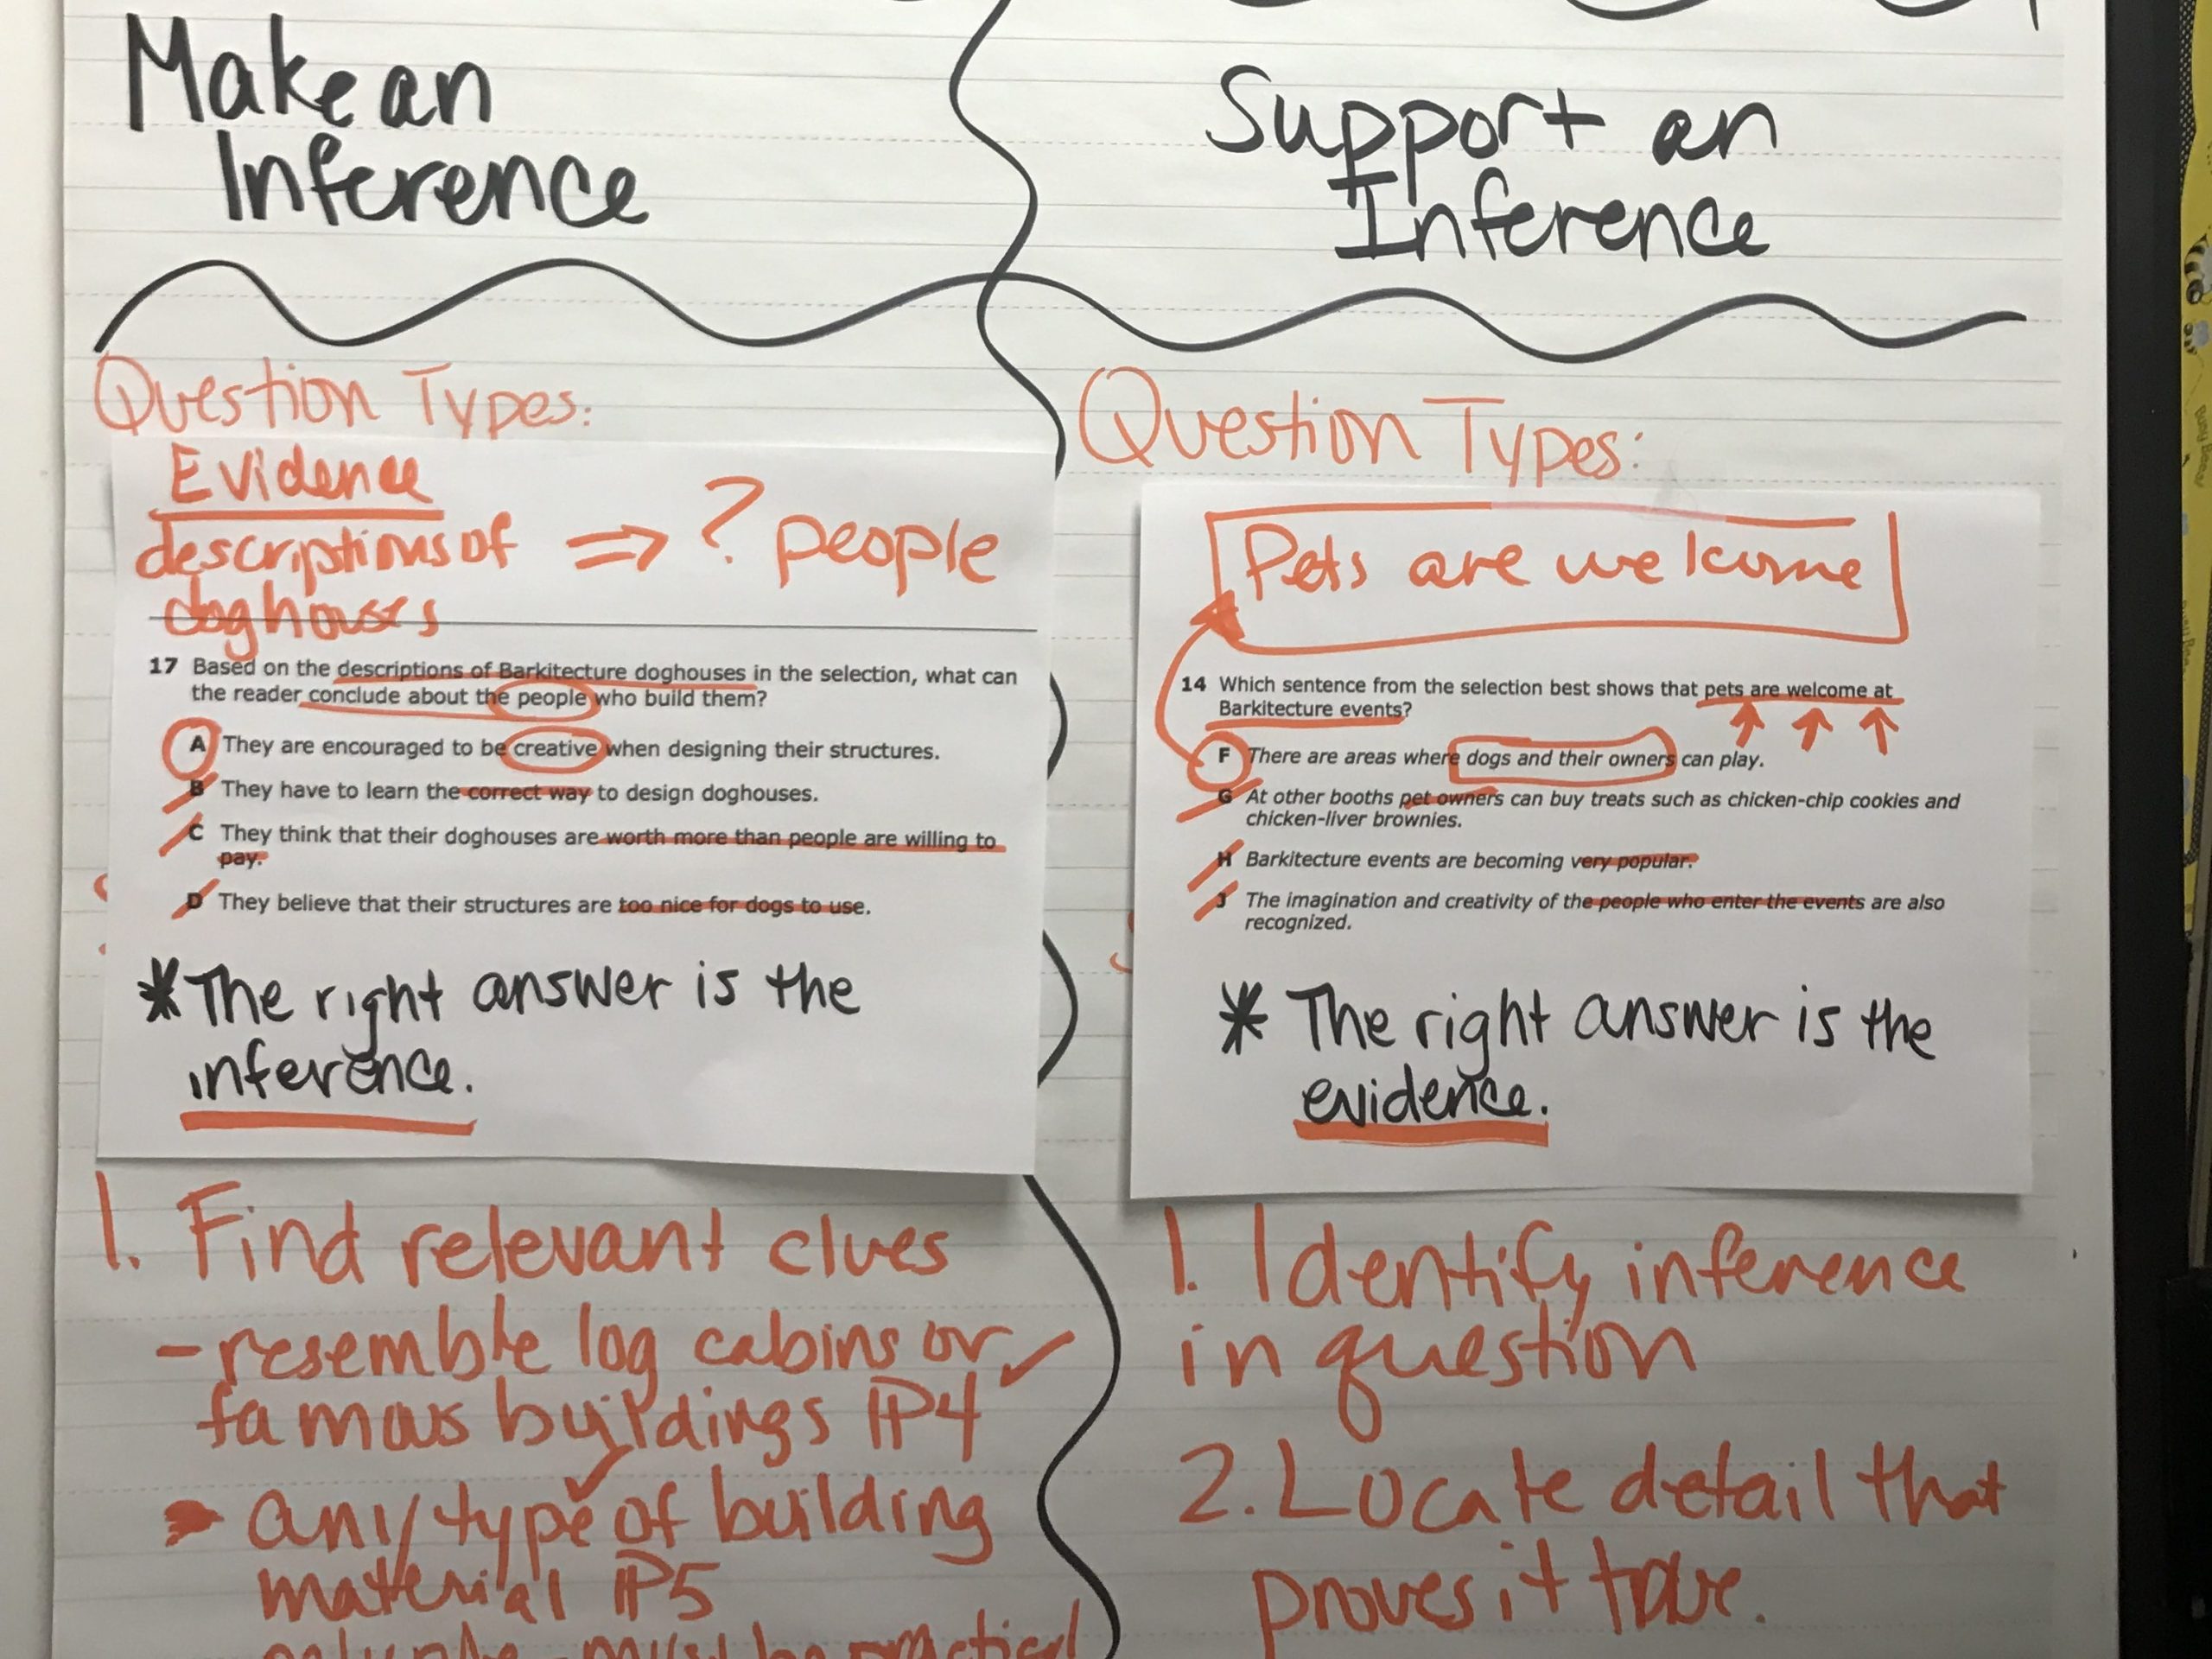 Make an
Inference
Question Types:
Evidence
descriptions of
doghouses
⇒ ? people
17 Based on the descriptions of Barkitecture doghouses in the selection, what can
the reader conclude about the people who build them?
A They are encouraged to be creative when designing their structures.
B They have to learn the correct way to design doghouses.
C They think that their doghouses are worth more than people are willing to
pay.
D They believe that their structures are too nice for dogs to use.
*The right answer is the
inference.
1. Find relevant clues
- resemble log cabins or
famous buildings IP4
any type of building
material IP5
must be practical
Support an
Inference
Question Types:
Pets are welcome
14 Which sentence from the selection best shows that pets are welcome at
Barkitecture events?
F There are areas where dogs and their owners can play.
G At other booths pet owners can buy treats such as chicken-chip cookies and
chicken-liver brownies.
H Barkitecture events are becoming very popular.
J The imagination and creativity of the people who enter the events are also
recognized.
* The right answer is the
evidence.
1. Identify inference
in question
2. Locate detail that
proves it true.